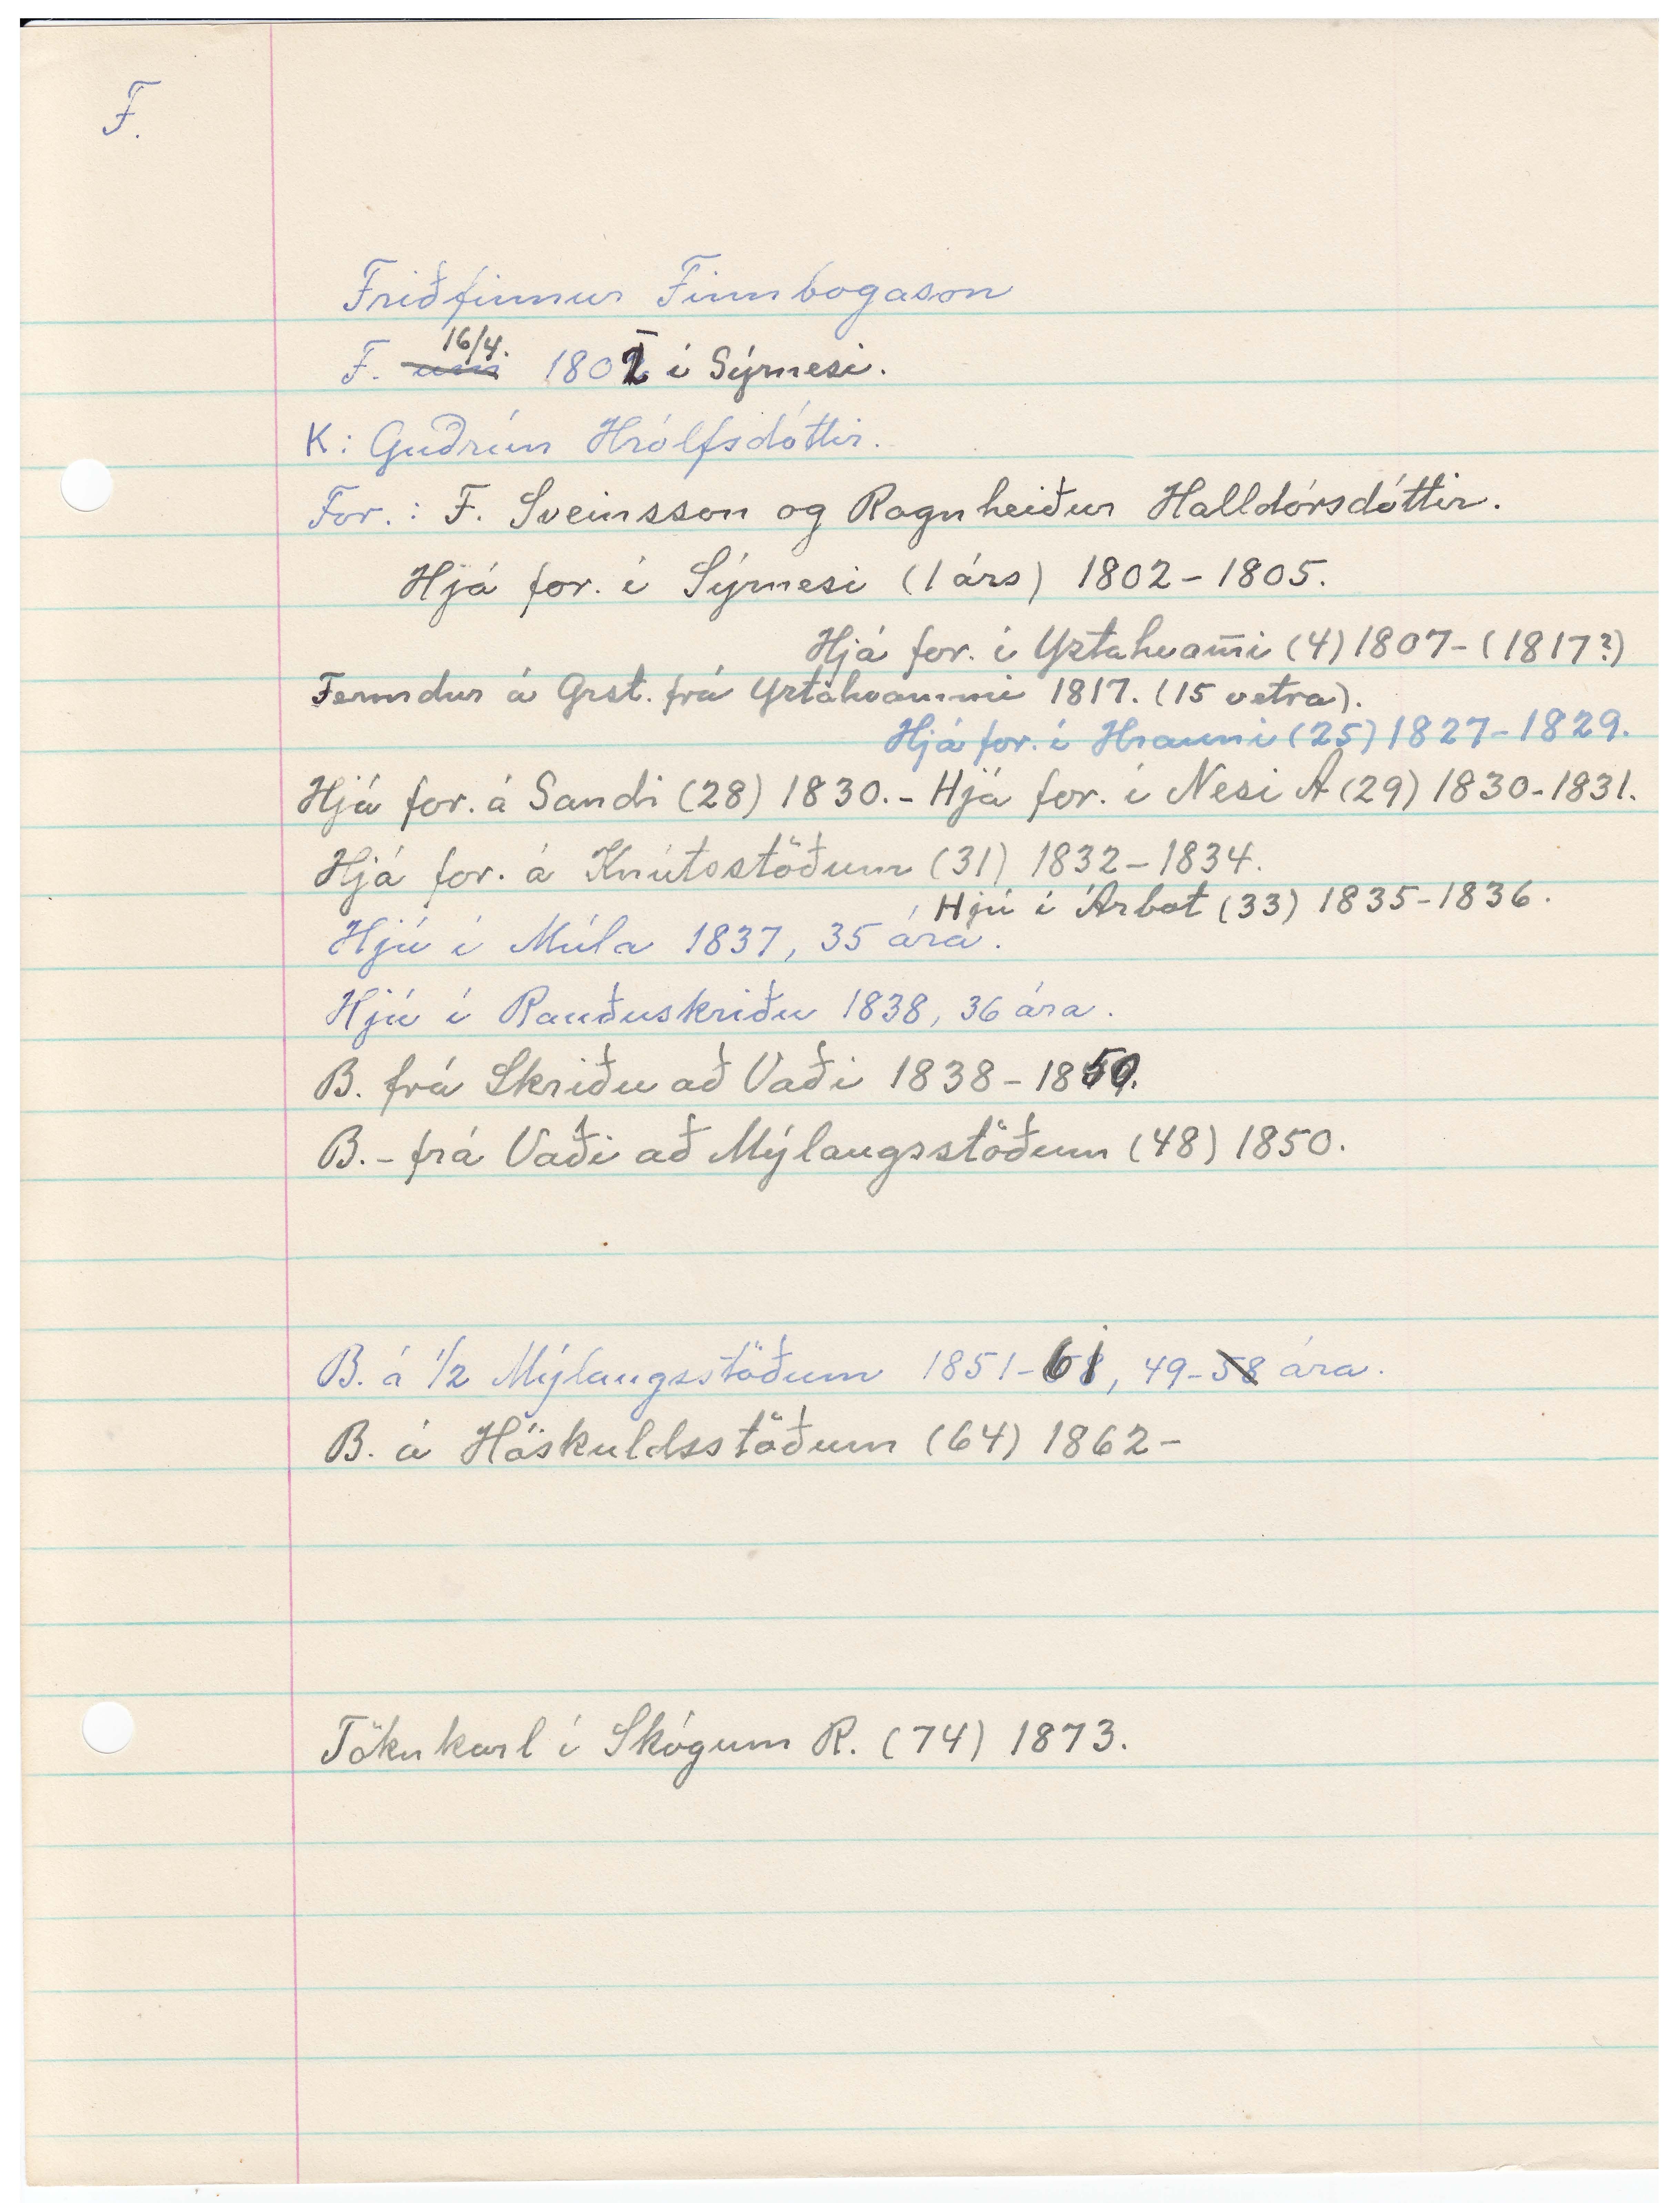 F.
Friðfinnur Finnbogason
16/4.
F. um 1801 í Sýrnesi.
K: Guðrún Hrólfsdóttir.
For.: F. Sveinsson og Ragnheiður Halldórsdóttir.
Hjá for. í Sýrnesi (1 árs) 1802-1805.
Hjá for. í Yztahvam̄i (4) 1807-(1817?)
Fermdur á Grst. frá Yztahvammi 1817. (15 vetra).
Hjá for. í Hrauni (25) 1827-1829.
Hjá for. á Sandi (28) 1830.- Hjá for. í Nesi A (29) 1830-1831.
Hjá for. á Knútsstöðum (31) 1832-1834.
Hjú í Árbót (33) 1835-1836.
Hjú í Múla 1837, 35 ára.
Hjú í Rauðuskriðu 1838, 36 ára.
B. frá Skriðu að Vaði 1838-1850.
B.- frá Vaði að Mýlaugsstöðum (48) 1850.
B. á 1/2 Mýlaugsstöðum 1851-61, 49-58 ára.
B. á Höskuldsstöðum (64) 1862-
Tökukarl í Skógum R. (74) 1873.